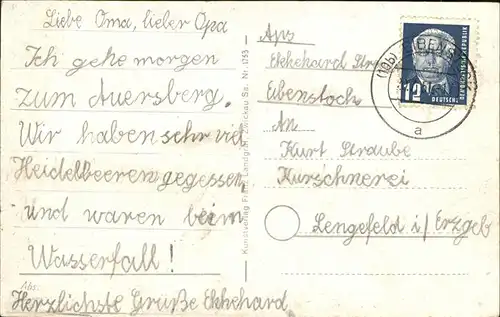 Liebe Oma, lieber Opa
Ich gehe morgen
zum Auersberg.
Wir haben sehr viel
Heidelbeeren gegessen
und waren beim
Wasserfall!
Abs:
Herzlichste Grüße Ekkehard
Kunstverlag Landgraf, Zwickau Sa. Nr.
Aps
Ekkehard Str
Eibenstock
An
Kurt Straube
Kürschnerei
Lengefeld i/Erzgeb
(10b) EIBEN
a
12
DEUTSCHE